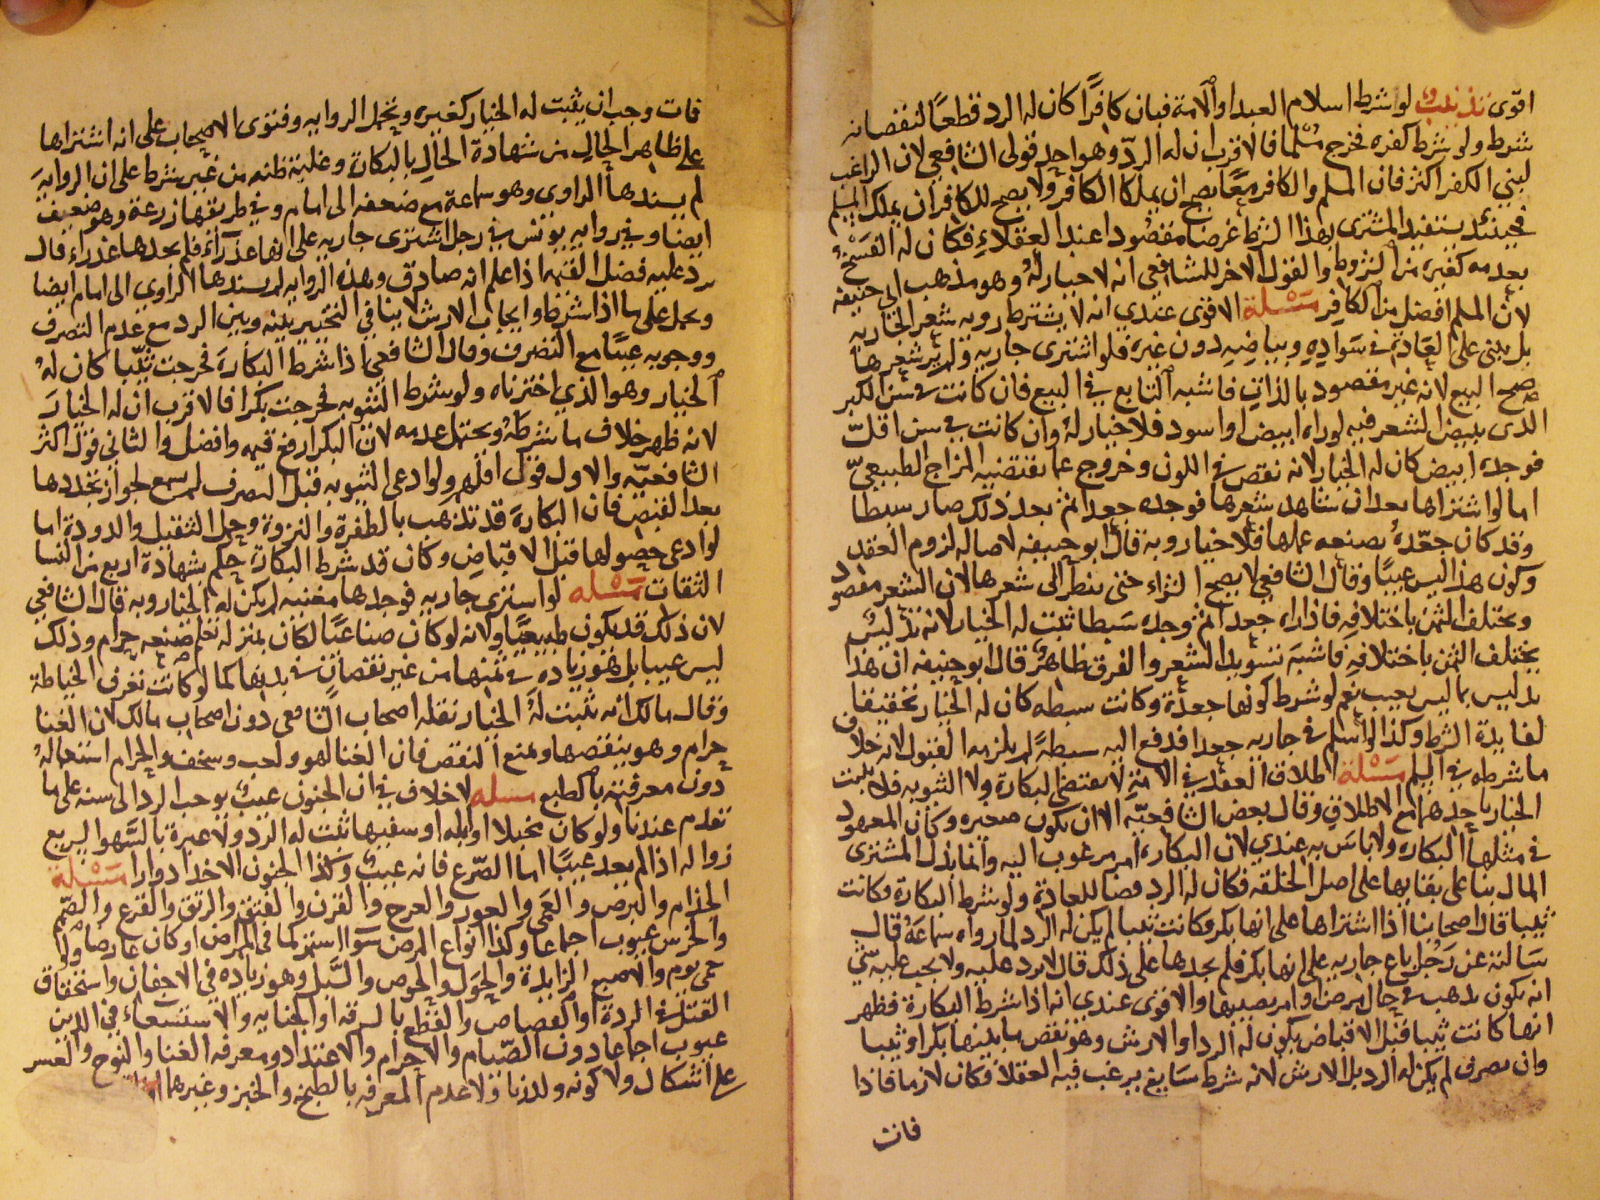 اقوى تذنيب لو شرط اسلام العبد او الامة فبان كافرًا كان له الرد قطعًا لنقصانه
شرط ولو شرط كفره فخرج مسلما فالاقرب ان له الردّ وهو احد قولي الشافعي لان الراغب
لبني الكفر اكثر فان المسلم والكافر معًا يصح ان يملكا الكافر ولا يصح للكافر ان يملك المسلم
فحينئذ يستفيد المشتري بهذا الشرط غرضا مقصودا عند العقلاء فكان له الفسخ
بعدمه كغيره من الشروط والقول الاخر للشافعي انه لا خيار له وهو مذهب ابي حنيفه
لان المسلم افضل من الكافر مسئلة الاقوى عندي انه لا يشترط رويه شعر الجاريه
بل يبنى على العادة في سواده وبياضه دون غيره فلو اشترى جاريه ولم ير شعرها
صح البيع لانه غير مقصود بالذات فاشبه التابع في البيع فان كانت في سن الكبر
الذى يبيض الشعر فيه لو راه ابيض او اسود فلا خيار له وان كانت في سن اقلّ
فوجده ابيض كان له الخيار لانه نقص في اللون وخروج عما يقتضيه المزاج الطبيعيّ
اما لو اشتراها بعد ان شاهد شعرها فوجده جعدا ثم بعد ذلك صار سبطا
وقد كان جعّده بصنعه عملها فلا خيار وبه قال ابو حنيفه لاصاله لزوم العقد
وكون هذا ليس عيبًا وقال الشافعي لا يصح الشراء حتى ينظر الى شعرها لان الشعر مقصود
ويختلف الثمن باختلافه فاذا راه جعدا ثم وجده سبطا ثبت له الخيار لانه تدليس
يختلف الثمن باختلافه فاشبه تسويد الشعر والفرق ظاهر قال ابو حنيفه ان هذا
تدليس بما ليس بعيب نعم لو شرط كونها جعدة وكانت سبطه كان له الخيار تحقيقا
لفايدة الشرط وكذا لو اسلم في جاريه جعدا فدفع اليه سبطة لم يلزمه القبول لانه خلاف
ما شرطه في السلم مسئلة اطلاق العقد في الامة لا يقتضى البكارة ولا الثيوبه فلا يثبت
الخيار باحدهما مع الاطلاق وقال بعض الشافعيّه الا ان يكون صغيره وكان المعهود
في مثلها البكاره ولا باس به عندي لان البكارة امر مرغوب اليه وانما بذل المشتري
المال بنا على بقايها على اصل الخلقه فكان له الرد قضا للعادة ولو شرط البكارة وكانت
ثيبا قال اصحابنا اذا اشتراها على انها بكر وكانت ثيبا لم يكن له الرد لما رواه سماعة قال
سالته عن رجل باع جاريه على انها بكر فلم يجدها على ذلك قال لا يرد عليه ولا يجب عليه شي
انه يكون يذهب في حال مرض او امر يصيبها والاقوى عندي انه اذا شرط البكارة فظهر
انها كانت ثيبا قبل الاقباض يكون له الرد او الارش وهو نقص ما بينها بكرا وثيبا
وان تصرف لم يكن له الرد بل الارش لانه شرط سايغ يرغب فيه العقلا فكان لازما فاذا
فات
فات وجب ان يثبت له الخيار كغيره وتحمل الروايه وفتوى الاصحاب على انه اشتراها
على ظاهر الحال من شهادة الحال بالبكارة وغلبة ظنه من غير شرط على ان الروايه
لم يسندها الراوى وهو سماعة مع ضعفه الى امام وفي طريقها زرعة وهو ضعيف
ايضا وفي روايه يونس في رجل اشترى جاريه على انها عذرآء فلم يجدها عذراء قال
يرد عليه فضل القيمة اذا علم انه صادق وهذه الروايه لم يسندها الراوي الى امام ايضا
وتحمل على ما اذا شرط وايجاب الارش لا ينافي التخيير بينه وبين الرد مع عدم التصرف
ووجوبه عينًا مع التصرف وقال الشافعي اذا شرط البكارة فخرجت ثيّبا كان له
الخيار وهو الذي اخترناه ولو شرط الثيوبه فخرجت بكرا فالاقرب ان له الخيار
لانه ظهر خلاف ما شرطه ويحتمل عدمه لان البكر ارفع قيمه وافضل والثاني قول اكثر
الشافعيّه والاول قول اقلهم ولو ادعى الثيوبه قبل التصرف لم تسمع لجواز تجددها
بعد القبض فان البكارة قد تذهب بالطفرة والنزوة وحمل الثقيل والدودة اما
لو ادعى حصولها قبل الاقباض وكان قد شرط البكارة حكم بشهادة اربع من النسا
الثقات مسئله لو اشترى جاريه فوجدها مغنيه لم يكن له الخيار وبه قال الشافعي
لان ذلك قد يكون طبيعيًا ولانه لو كان صناعيًا لكان بمنزله تعلم صنعه حرام وذلك
ليس عيبا بل هو زياده في ثمنها من غير نقصان في بدنها كما لو كانت تعرف الخياطة
وقال مالك انه يثبت له الخيار نقله اصحاب الشافعى دون اصحاب مالك لان الغنا
حرام وهو ينقصها ونمنع النقص فان الغنا لهو ولعب وسخف والحرام استعماله
دون معرفته بالطبع مسئله لا خلاف في ان الجنون عيب يوجب الرد الى سنه على ما
تقدم عندنا ولو كان مخبلا او ابله او سفيها ثبت له الرد ولا عبرة بالسّهو السريع
زواله اذا لم يعد عيبًا اما الصّرع فانه عيب وكذا الجنون الاخذ ادوارا مسئلة
الجذام والبرص والعمى والعور والعرج والقرن والفتق والرتق والقرع والصّم
والخرس عيوب اجماعا وكذا انواع المرض سوآ استمر كما في الممراض او كان عارضا ولو
حمى يوم والاصبع الزايدة والحول والخوص والسّبل وهو زياده في الاجفان واستحقاق
القتل في الردة او القصاص والقطع بالسرقه او الجنايه والاستسعاء في الدين
عيوب اجماعا دون الصّيام والاحرام والاعتداد ومعرفه الغنا والنوح والعسر
على اشكال ولا كونه ولد زنا ولا عدم المعرفه بالطبخ والخبز وغيرهما